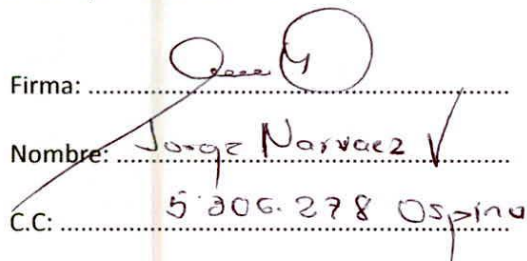 Firma:
Nombre: Jorge Narvaez V
C.C: 5.206.278 Ospina